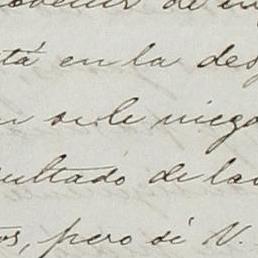 de
tá en la des
se le niega
sultado de las
os, pero si V.